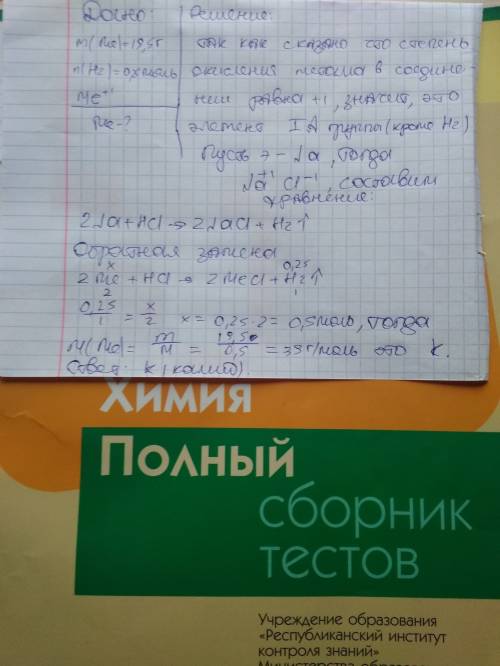 Дано:
Решение:
m(Me)=19,5г
n(H2)=0,25моль
Me+1
Me-?
так как сказано что степень
окисления металла в соедине-
нии равна +1, значит, это
элемент IA группы (кроме H2)
Пусть э - Na, тогда
Na+1 Cl-1, составим
уравнение:
2Na+HCl→2NaCl+H2↑
Обратная записка
x 0,25
2Me+HCl→2MeCl+H2↑
2 1
0,25/1 = x/2 x=0,25·2=0,5моль, тогда
M(Me)= m/M = 19,50/0,5 =39г/моль это K.
Ответ: K (калий).
Химия
Полный
сборник
тестов
Учреждение образования
«Республиканский институт
контроля знаний»
Министерства образова